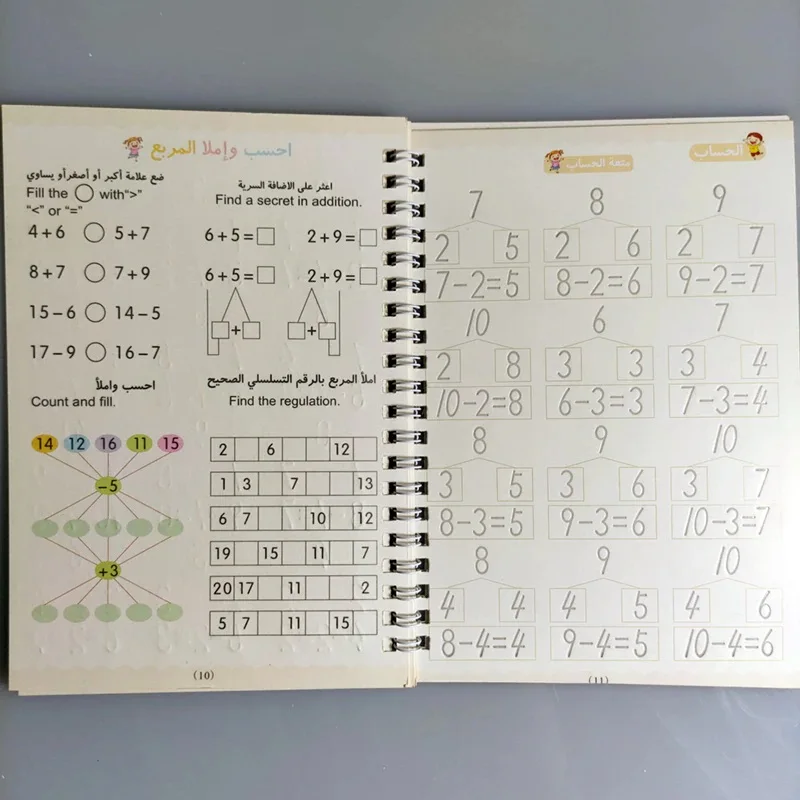 احسب وإملا المربع
ضع علامة أكبر أو أصغرأو يساوي
Fill the ◯ with“>”
“<” or “=”
4+6 ◯ 5+7
8+7 ◯ 7+9
15−6 ◯ 14−5
17−9 ◯ 16−7
اعثر على الاضافة السرية
Find a secret in addition.
6+5=□ 2+9=□
6+5=□ 2+9=□
□+□ □+□
احسب واملأ
Count and fill.
14 12 16 11 15
−5
+3
املأ المربع بالرقم التسلسلي الصحيح
Find the regulation.
2 6 12
1 3 7 13
6 7 10 12
19 15 11 7
20 17 11 2
5 7 11 15
(10)
متعة الحساب
الحساب
7 8 9
2 5 2 6 2 7
7−2=5 8−2=6 9−2=7
10 6 7
2 8 3 3 3 4
10−2=8 6−3=3 7−3=4
8 9 10
3 5 3 6 3 7
8−3=5 9−3=6 10−3=7
8 9 10
4 4 4 5 4 6
8−4=4 9−4=5 10−4=6
(11)